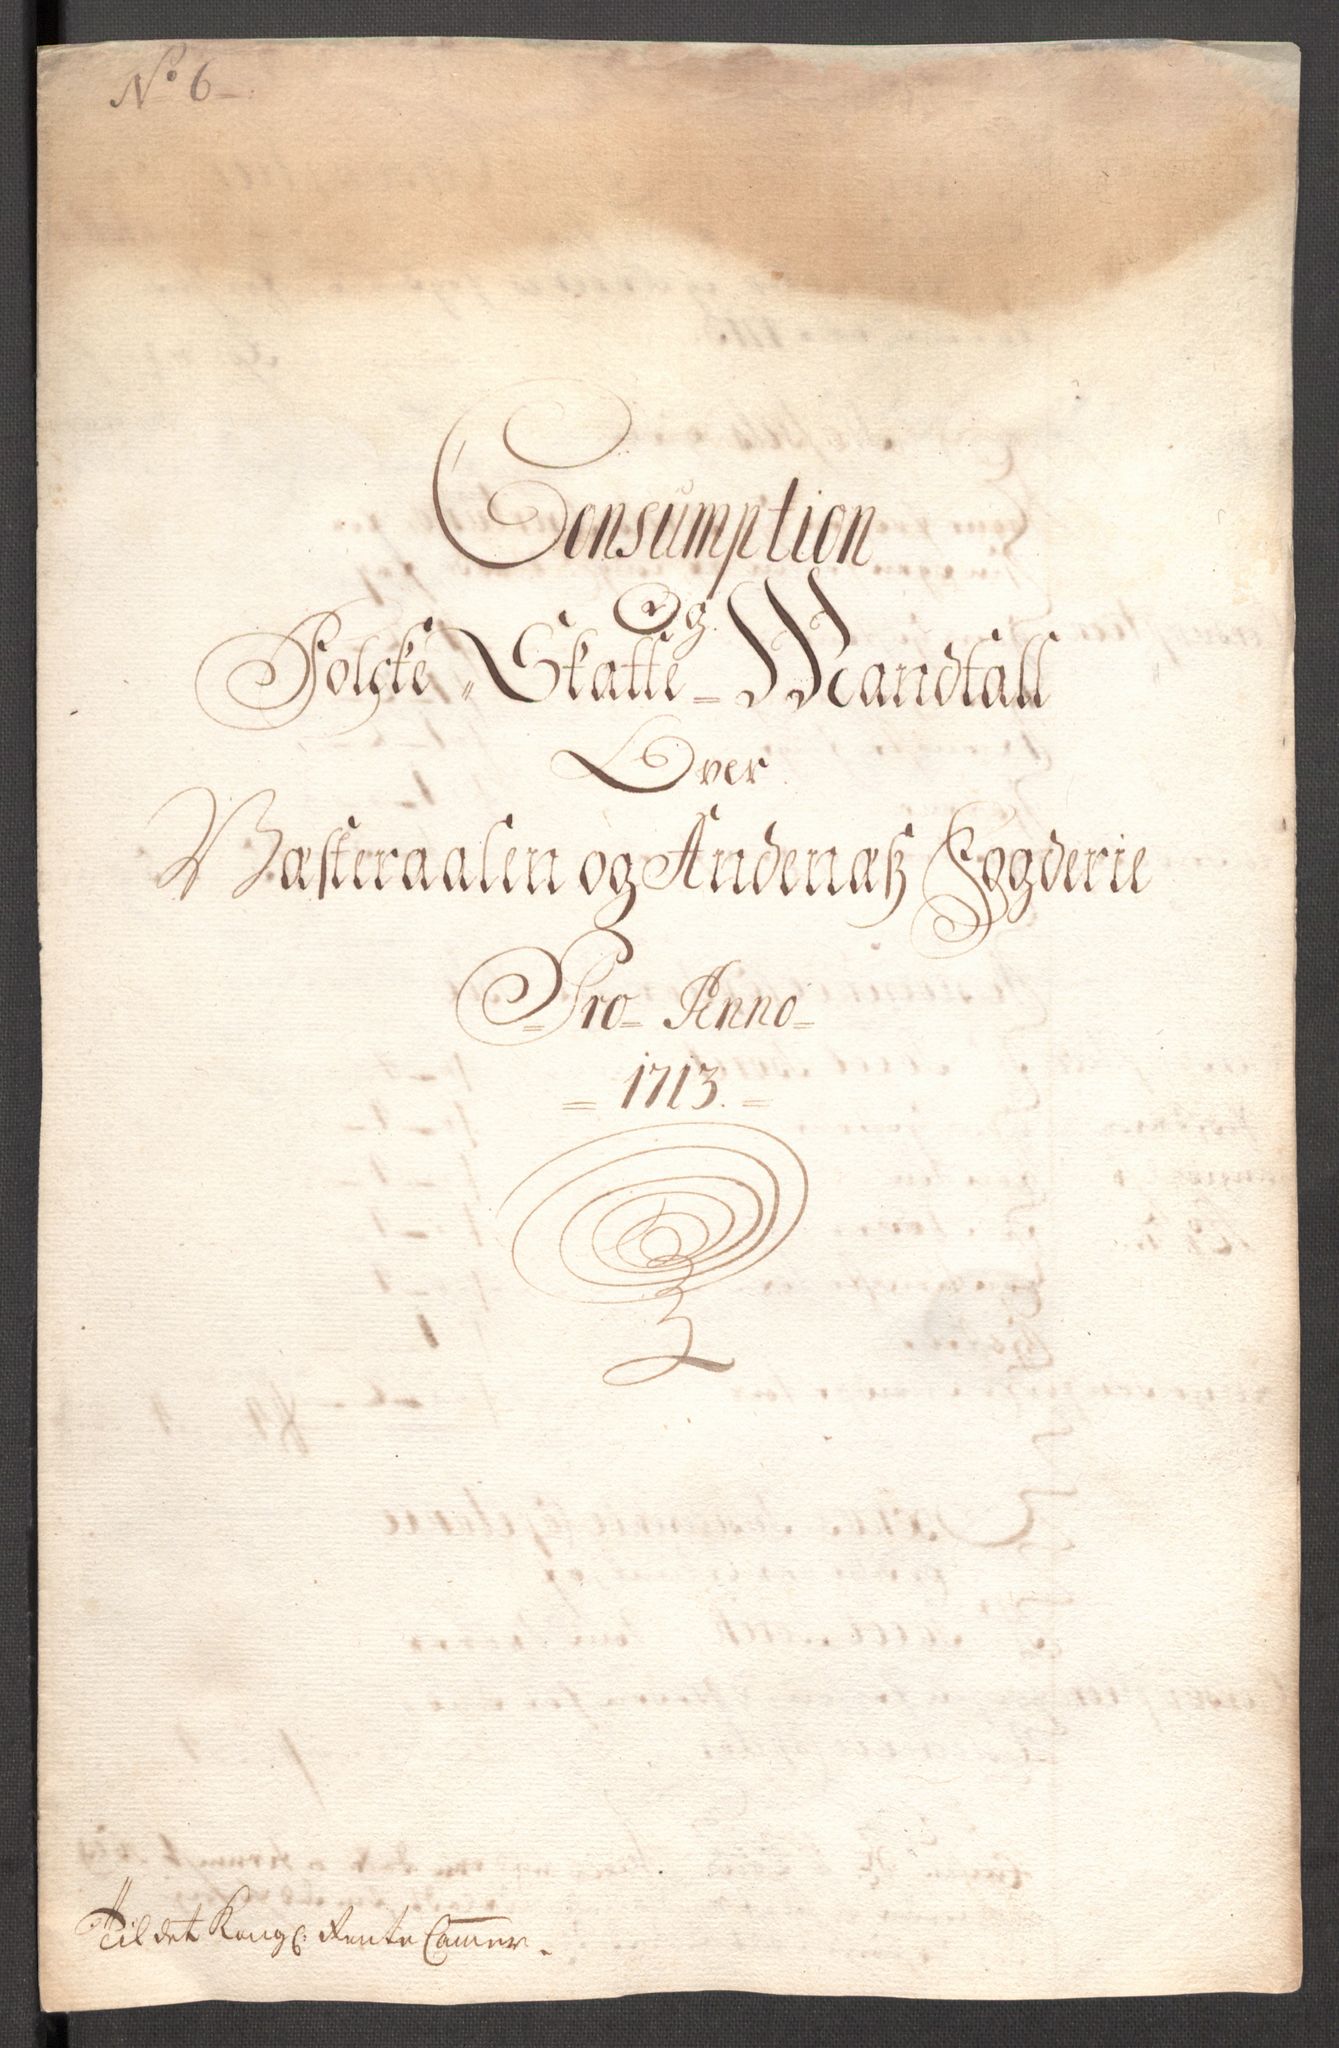 No 6
Consumption
Og
Folcke=Skatte=Mandtall
Over
Væsteraalen og Andenæs Fogderie
Pro Anno
1713.
Til det Kongl: Rente Cammer.